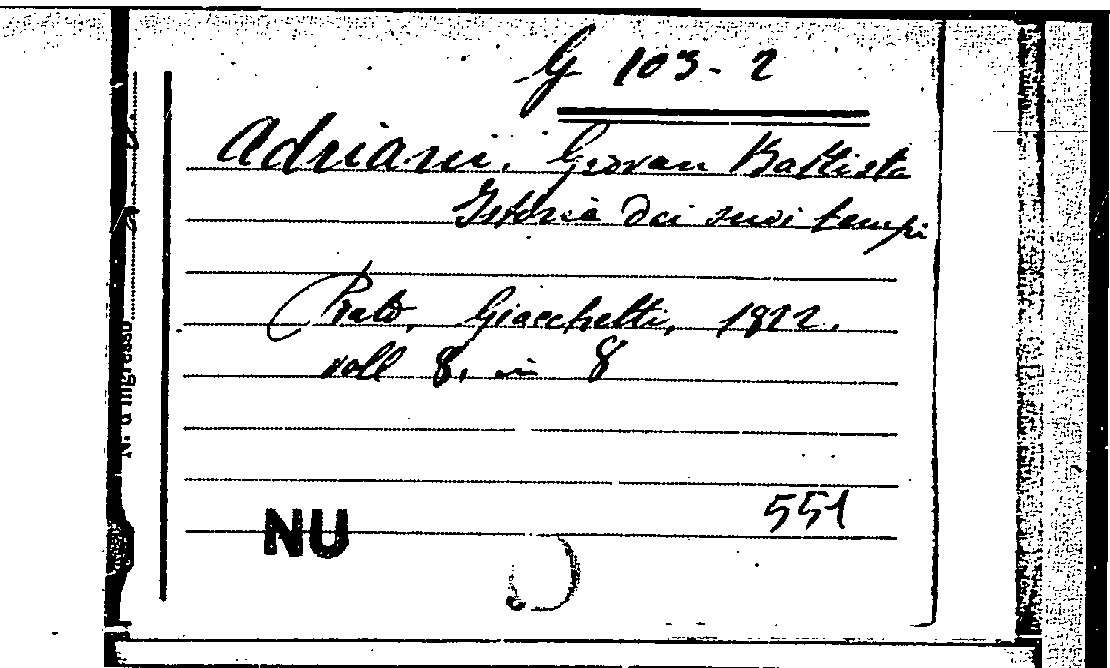 G 103-2
Adriani, Giovan Battista
Istoria dei suoi tempi
Prato, Giacchetti, 1822.
voll 8. in 8
551
NU
N. d'ingresso